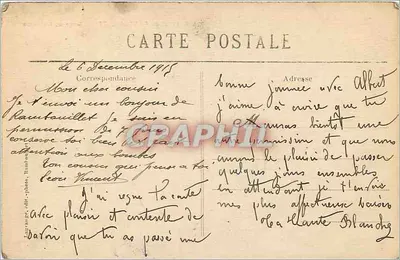 CARTE POSTALE
Correspondance
Adresse
le 6 Decembre 1915
Mon cher cousin
Je t'envoi un bonjour de
Rambouillet je suis en
permission de 7 jours
conserve toi bien
attention aux bombes
Ton cousin qui pense a toi
Vincent
J'ai reçue ta carte
avec plaisir et contente de
savoir que tu as passé une
bonne journee avec Albert
j'aime à croire que tu
auras bientot une
permission et que nous
aurons le plaisir de passer
quelques jours ensembles
en attendant je t'envoie
mes plus affectueux baisers
Ta Tante Blanche
CPAPHIL